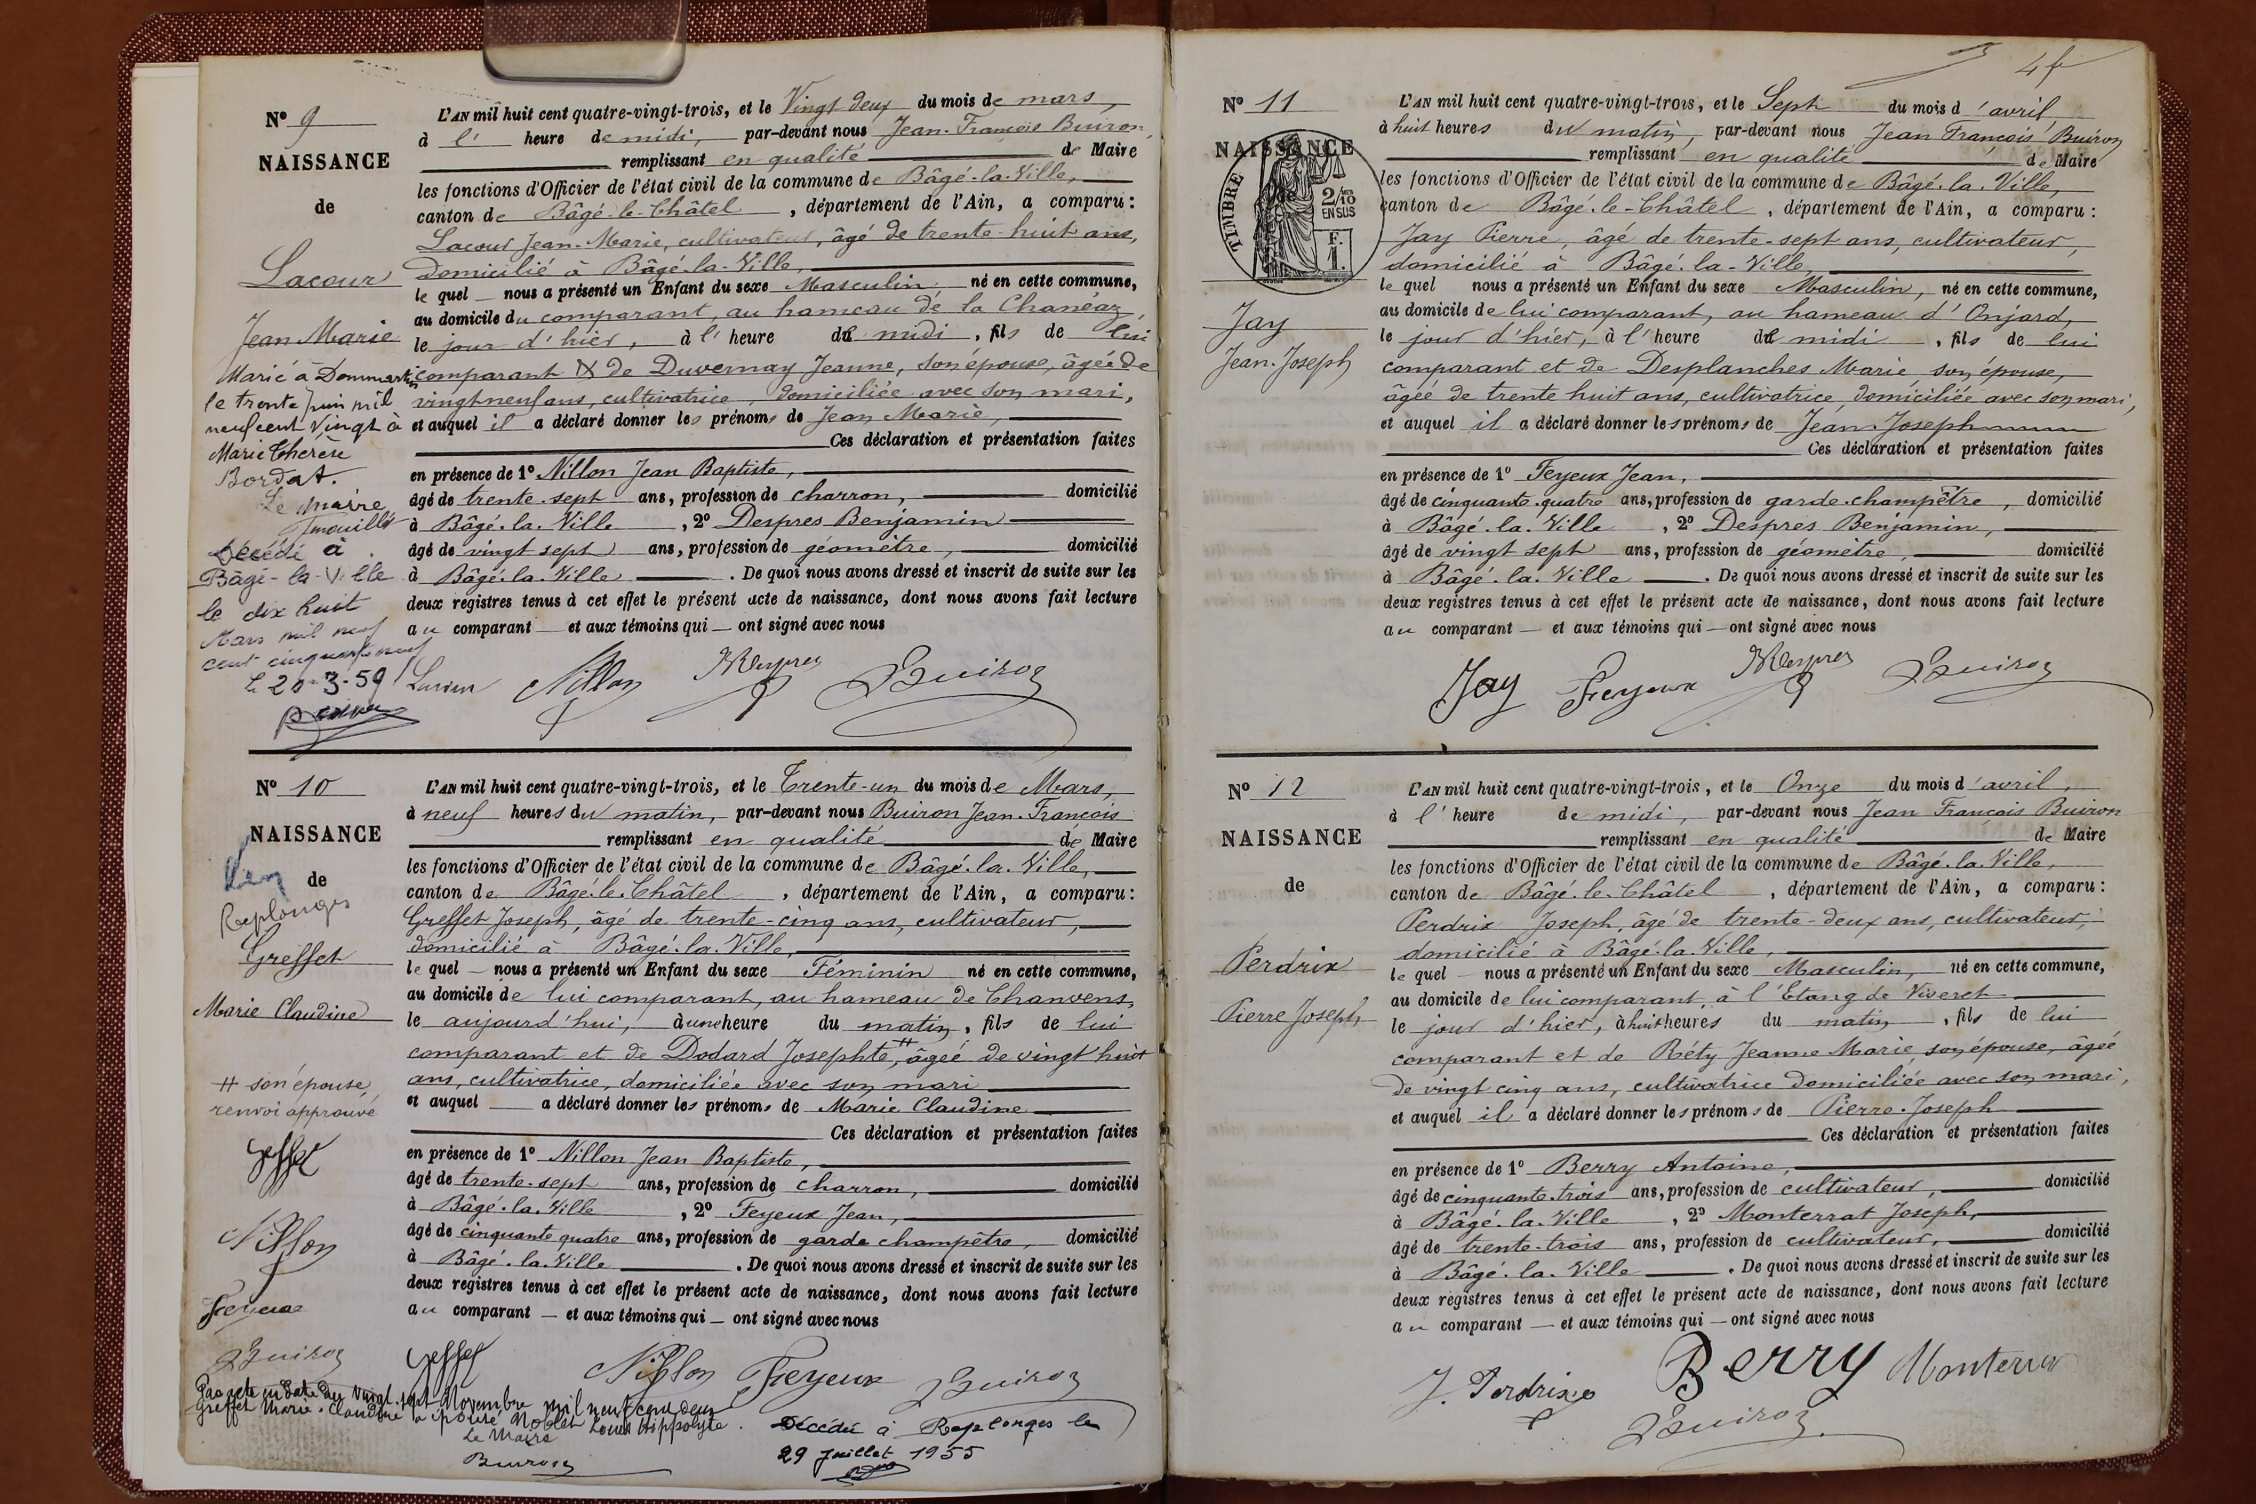 Nº 9
NAISSANCE
de
Lacour
Jean Marie
Marié à Dommartin
le trente juin mil
neuf cent vingt à
Marie Thérèse
Bordat.
Le Maire
Décédé à
Bâgé-la-Ville
le dix huit
Mars mil neuf
cent cinquante neuf
le 20-3-59
L'AN mil huit cent quatre-vingt-trois, et le Vingt deux du mois de mars,
à l' heure de midi, par-devant nous Jean-François Buiron,
remplissant en qualité de Maire
les fonctions d'Officier de l'état civil de la commune de Bâgé-la-Ville,
canton de Bâgé-le-Châtel, département de l'Ain, a comparu :
Lacour Jean-Marie, cultivateur, âgé de trente-huit ans,
domicilié à Bâgé-la-Ville,
le quel nous a présenté un Enfant du sexe Masculin, né en cette commune,
au domicile du comparant, au hameau de la Chanéaz,
le jour d'hier, à l' heure de midi, fils de lui
comparant & de Duvernay Jeanne, son épouse, âgée de
vingt neuf ans, cultivatrice, domiciliée avec son mari,
et auquel il a déclaré donner les prénoms de Jean Marie,
Ces déclaration et présentation faites
en présence de 1º Nillon Jean Baptiste,
âgé de trente-sept ans, profession de charron, domicilié
à Bâgé-la-Ville, 2º Despres Benjamin
âgé de vingt sept ans, profession de géomètre, domicilié
à Bâgé-la-Ville. De quoi nous avons dressé et inscrit de suite sur les
deux registres tenus à cet effet le présent acte de naissance, dont nous avons fait lecture
au comparant et aux témoins qui ont signé avec nous
Lacour Nillon Despres Buiron
Nº 10
NAISSANCE
de
Replonges
Greffet
Marie Claudine
# son épouse,
renvoi approuvé
Greffet
Nillon
Feyeux
Buiron
L'AN mil huit cent quatre-vingt-trois, et le Trente-un du mois de Mars,
à neuf heures du matin, par-devant nous Buiron Jean-François
remplissant en qualité de Maire
les fonctions d'Officier de l'état civil de la commune de Bâgé-la-Ville,
canton de Bâgé-le-Châtel, département de l'Ain, a comparu :
Greffet Joseph, âgé de trente-cinq ans, cultivateur,
domicilié à Bâgé-la-Ville,
le quel nous a présenté un Enfant du sexe Féminin né en cette commune,
au domicile de lui comparant, au hameau de Chanvens,
le aujourd'hui, à une heure du matin, fils de lui
comparant et de Dodard Josephte, # âgée de vingt huit
ans, cultivatrice, domiciliée avec son mari
et auquel a déclaré donner les prénoms de Marie Claudine
Ces déclaration et présentation faites
en présence de 1º Nillon Jean Baptiste,
âgé de trente-sept ans, profession de charron, domicilié
à Bâgé-la-Ville, 2º Feyeux Jean,
âgé de cinquante quatre ans, profession de garde champêtre, domicilié
à Bâgé-la-Ville. De quoi nous avons dressé et inscrit de suite sur les
deux registres tenus à cet effet le présent acte de naissance, dont nous avons fait lecture
au comparant et aux témoins qui ont signé avec nous
Greffet Nillon Feyeux Buiron
Par acte en date du vingt-sept Novembre mil neuf cent deux
Greffet Marie-Claudine a épousé Noblet Louis Hippolyte.
Le Maire
Buiron
Décédée à Replonges le
29 Juillet 1955
4 f
Nº 11
NAISSANCE
de
TIMBRE
2/10
EN SUS
F.
1.
Jay
Jean-Joseph
L'AN mil huit cent quatre-vingt-trois, et le Sept du mois d'avril,
à huit heures du matin, par-devant nous Jean François Buiron
remplissant en qualité de Maire
les fonctions d'Officier de l'état civil de la commune de Bâgé-la-Ville,
canton de Bâgé-le-Châtel, département de l'Ain, a comparu :
Jay Pierre, âgé de trente-sept ans, cultivateur,
domicilié à Bâgé-la-Ville,
le quel nous a présenté un Enfant du sexe Masculin, né en cette commune,
au domicile de lui comparant, au hameau d'Onjard,
le jour d'hier, à l' heure de midi, fils de lui
comparant et de Desplanches Marie, son épouse,
âgée de trente huit ans, cultivatrice, domiciliée avec son mari,
et auquel il a déclaré donner les prénoms de Jean-Joseph
Ces déclaration et présentation faites
en présence de 1º Feyeux Jean,
âgé de cinquante-quatre ans, profession de garde-champêtre, domicilié
à Bâgé-la-Ville, 2º Despres Benjamin,
âgé de vingt sept ans, profession de géomètre, domicilié
à Bâgé-la-Ville. De quoi nous avons dressé et inscrit de suite sur les
deux registres tenus à cet effet le présent acte de naissance, dont nous avons fait lecture
au comparant et aux témoins qui ont signé avec nous
Jay Feyeux Despres Buiron
Nº 12
NAISSANCE
de
Perdrix
Pierre Joseph
L'AN mil huit cent quatre-vingt-trois, et le Onze du mois d'avril,
à l' heure de midi, par-devant nous Jean François Buiron
remplissant en qualité de Maire
les fonctions d'Officier de l'état civil de la commune de Bâgé-la-Ville,
canton de Bâgé-le-Châtel, département de l'Ain, a comparu :
Perdrix Joseph, âgé de trente-deux ans, cultivateur,
domicilié à Bâgé-la-Ville,
le quel nous a présenté un Enfant du sexe Masculin, né en cette commune,
au domicile de lui comparant, à l'Etang de Viseret
le jour d'hier, à huit heures du matin, fils de lui
comparant et de Réty Jeanne Marie, son épouse, âgée
de vingt cinq ans, cultivatrice domiciliée avec son mari,
et auquel il a déclaré donner les prénoms de Pierre-Joseph
Ces déclaration et présentation faites
en présence de 1º Berry Antoine,
âgé de cinquante-trois ans, profession de cultivateur, domicilié
à Bâgé-la-Ville, 2º Monterrat Joseph,
âgé de trente-trois ans, profession de cultivateur, domicilié
à Bâgé-la-Ville. De quoi nous avons dressé et inscrit de suite sur les
deux registres tenus à cet effet le présent acte de naissance, dont nous avons fait lecture
au comparant et aux témoins qui ont signé avec nous
J. Perdrix Berry Monterrat
Buiron